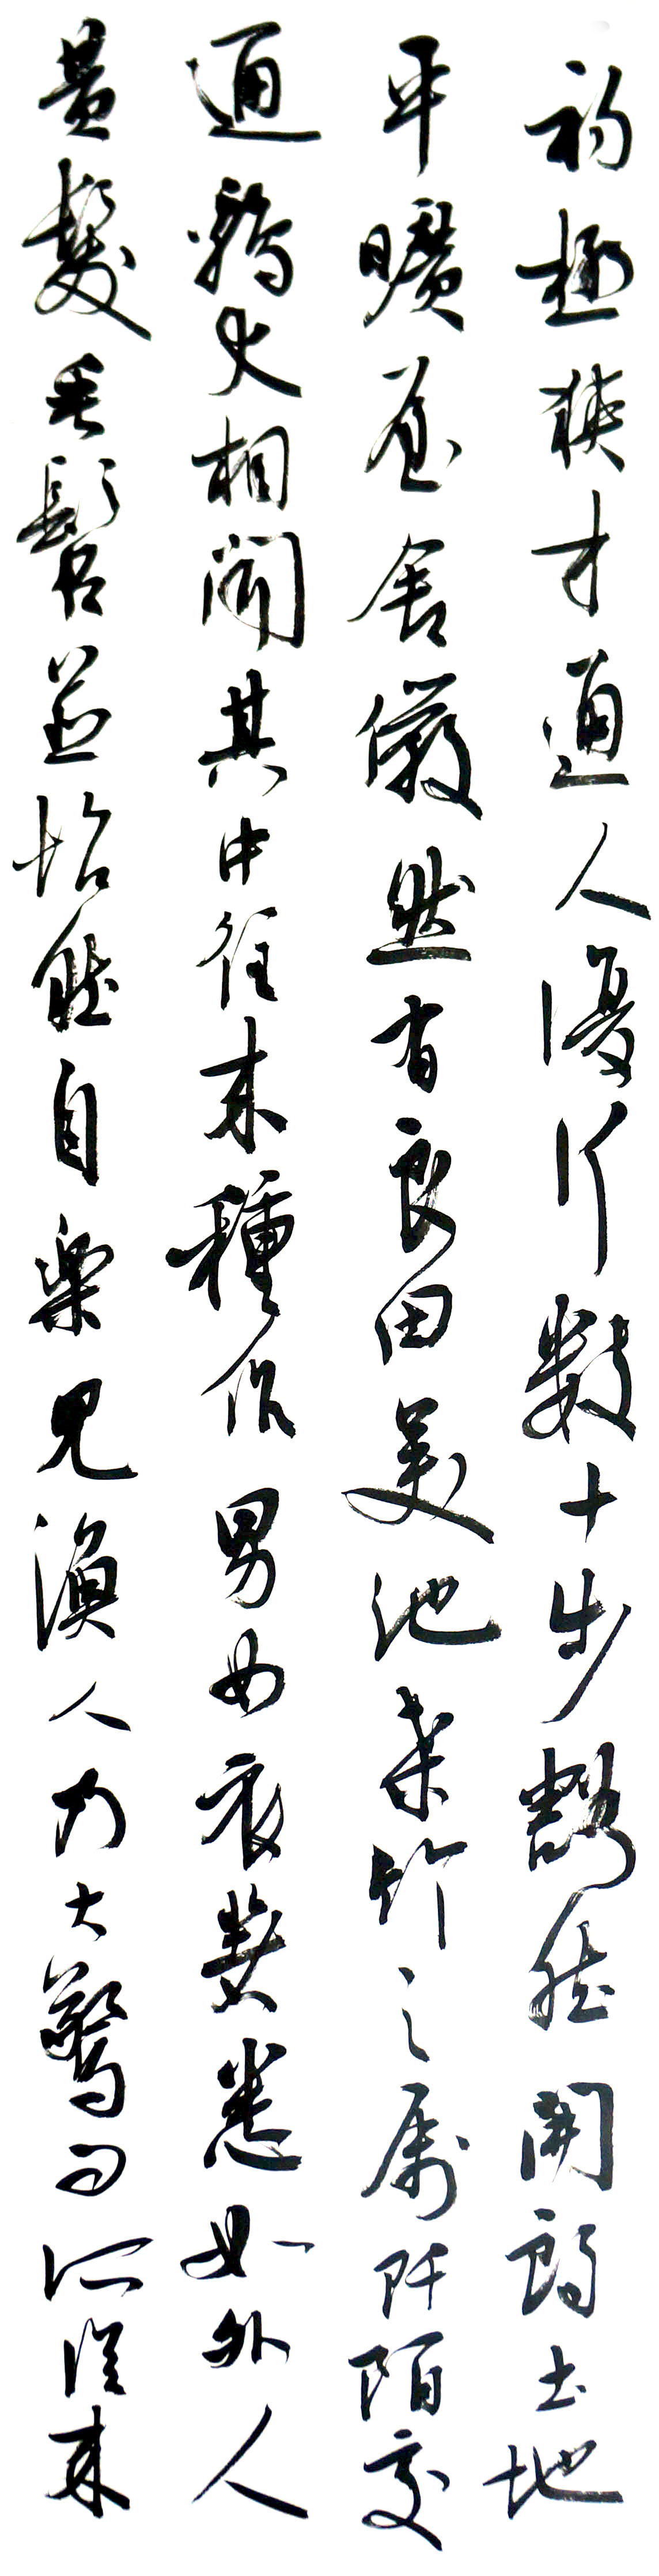 初極狭才通人復行数十步豁然開朗土地
平曠屋舍儼然有良田美池桑竹之属阡陌交
通鷄犬相聞其中往来種作男女衣著悉如外人
黄髮垂髫並怡然自楽見漁人乃大驚問所從来